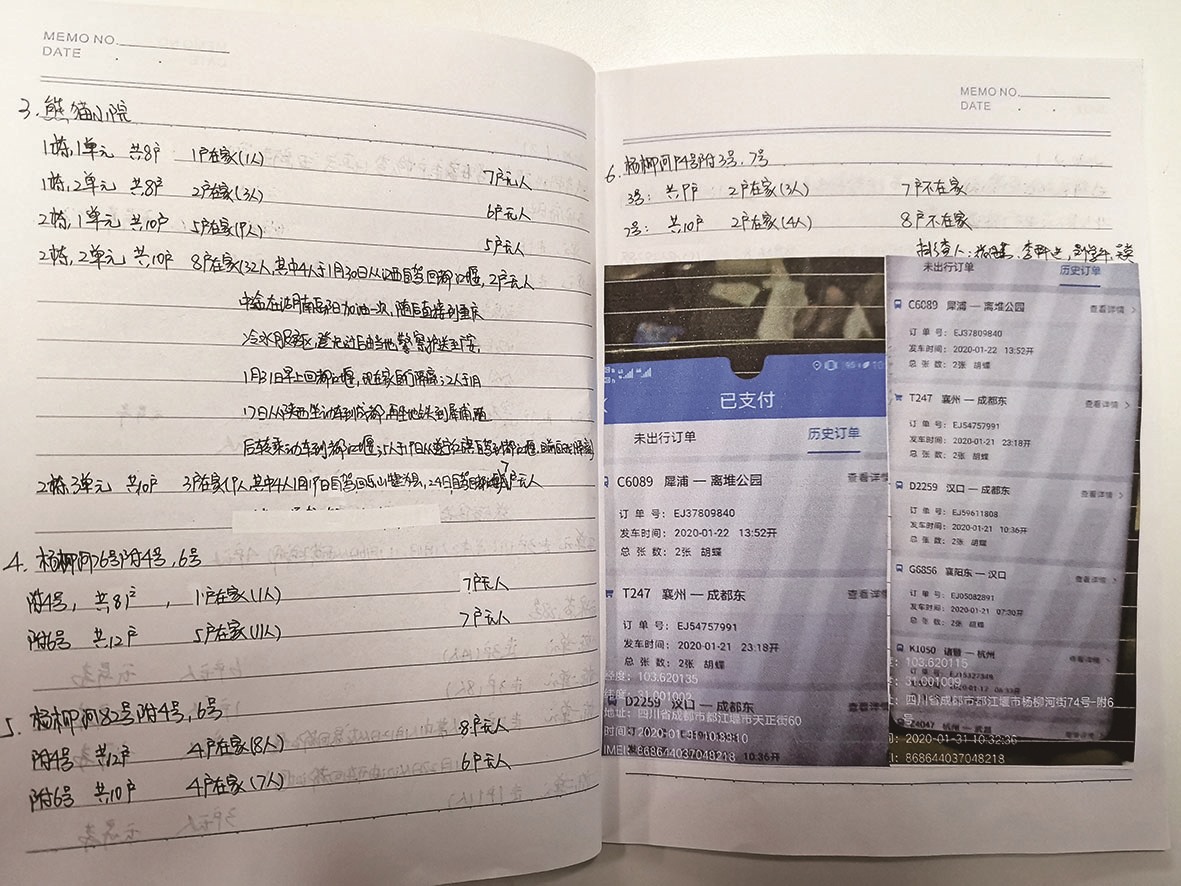 MEMO NO.
DATE
3.熊猫小院
1栋,1单元 共8户 1户在家(1人) 7户无人
1栋,2单元 共8户 2户在家(3人) 6户无人
2栋,1单元 共10户 5户在家(9人) 5户无人
2栋,2单元 共10户 8户在家(32人,其中4人于1月30日从江西自驾回都江堰,2户无人
中途在湖南岳阳加油一次,随后直接到重庆
冷水服务区,登记过后由当地警察护送至广安,
1月31日早上回都江堰,现在家自行隔离;2人于1月
17日从陕西坐动车到成都,再坐地铁到犀浦
后转乘动车到都江堰;5人于19日从
2栋3单元 共10户 3户在家(9人,其中4人1月19日自驾回乐山犍为县,24日自驾回 7户无人
4.杨柳河76号附4号,6号
附4号, 共8户, 1户在家(1人) 7户无人
附6号 共12户 5户在家(11人) 7户无人
5.杨柳河82号附4号,6号
附4号 共12户 4户在家(8人) 8户无人
附6号 共10户 4户在家(7人) 6户无人
MEMO NO.
DATE
6.杨柳河74号附3号、7号
3号: 共9户 2户在家(3人) 7户不在家
7号: 共10户 2户在家(4人) 8户不在家
排查人:
已支付
未出行订单 历史订单
C6089 犀浦 — 离堆公园 查看详情
订 单 号: EJ37809840
发车时间: 2020-01-22 13:52开
总 张 数: 2张 胡蝶
T247 襄州 — 成都东 查看详情
订 单 号: EJ54757991
发车时间: 2020-01-21 23:18开
总 张 数: 2张 胡蝶
经度: 103.620135
纬度: 31.001002
D2259 汉口 — 成都东 查看详情
地址: 四川省成都市都江堰市天正街60
IMEI: 868644037048218
10:36开
未出行订单 历史订单
C6089 犀浦 — 离堆公园 查看详情 >
订 单 号: EJ37809840
发车时间: 2020-01-22 13:52开
总 张 数: 2张 胡蝶
T247 襄州 — 成都东 查看详情 >
订 单 号: EJ54757991
发车时间: 2020-01-21 23:18开
总 张 数: 2张 胡蝶
D2259 汉口 — 成都东 查看详情 >
订 单 号: EJ59611808
发车时间: 2020-01-21 10:36开
总 张 数: 2张 胡蝶
G6856 襄阳东 — 汉口 查看详情 >
订 单 号: EJ05082891
发车时间: 2020-01-21 07:30开
总 张 数: 2张 胡蝶
K1050 诸暨 — 杭州 查看详情 >
103.620115
31.001009
四川省成都市都江堰市杨柳河街74号-附6
号
2020-01-31 10:32:36
868644037048218